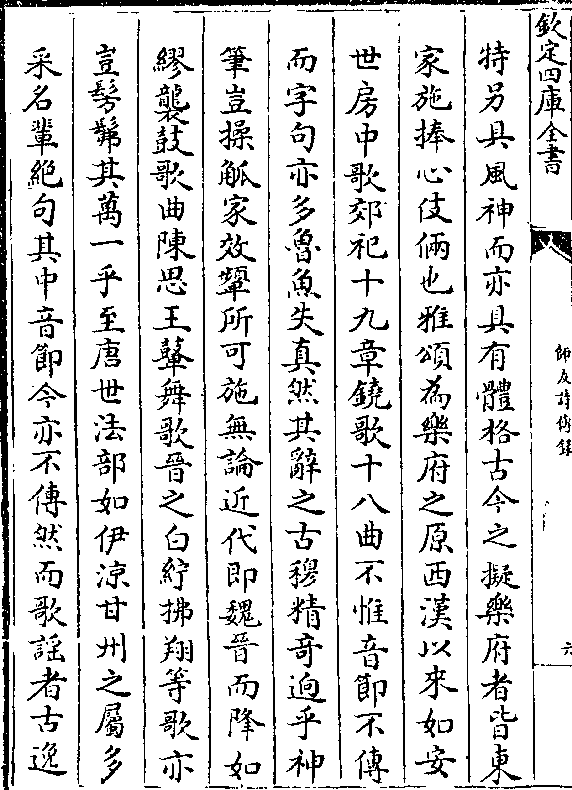 欽定四庫全書
師友詩傳錄
六
特另具風神而亦具有體格古今之擬樂府者皆東
家施捧心伎倆也雅頌為樂府之原西漢以來如安
世房中歌郊祀十九章鐃歌十八曲不惟音節不傳
而字句亦多魯魚失真然其辭之古穆精奇迥乎神
筆豈操觚家效顰所可施無論近代即魏晉而降如
繆襲鼓歌曲陳思王鼙舞歌晉之白紵拂翔等歌亦
豈髣髴其萬一乎至唐世法部如伊涼甘州之屬多
采名輩絶句其中音節今亦不傳然而歌謡者古逸